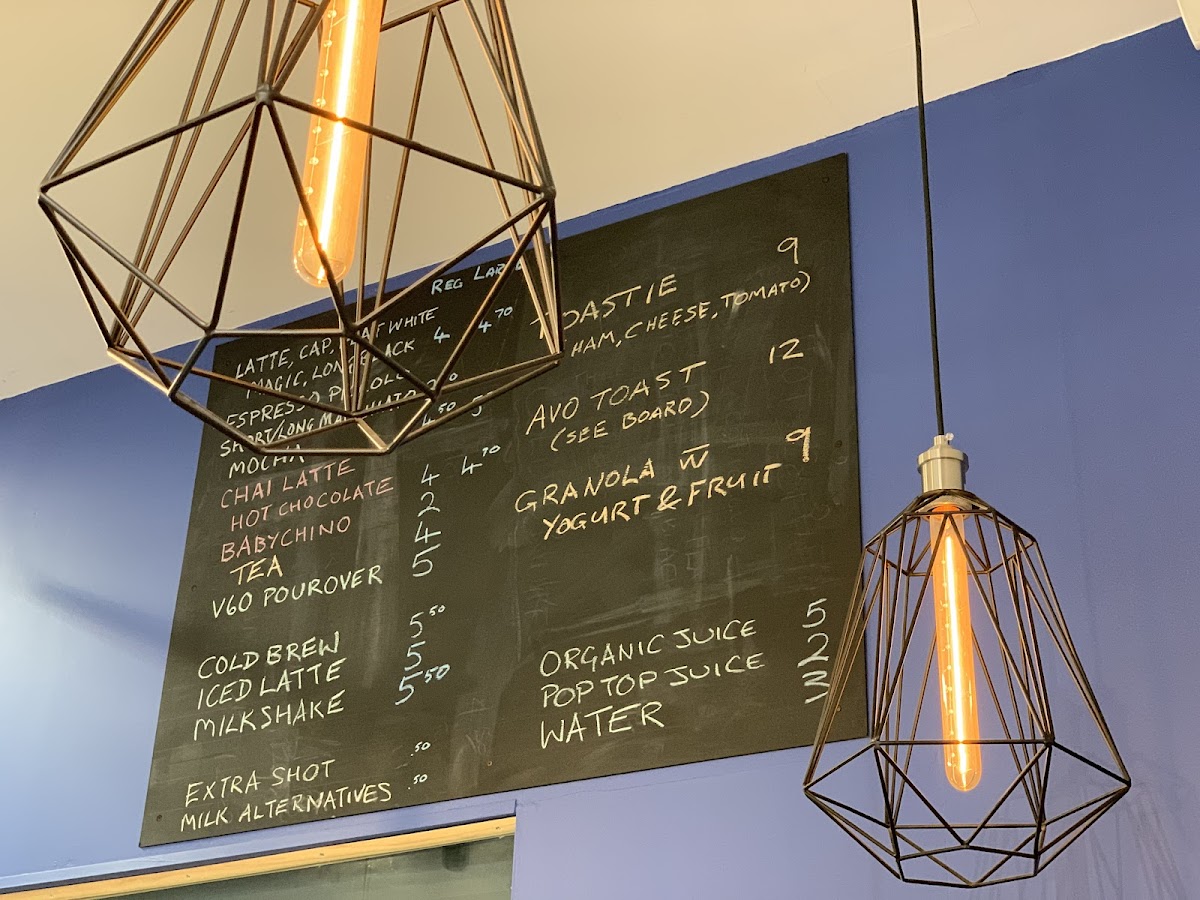 REG LARGE
LATTE, CAP, FLAT WHITE
MAGIC, LONG BLACK 4 4.70
ESPRESSO PICCOLO
SHORT/LONG MACCHIATO
MOCHA 4.50
CHAI LATTE
HOT CHOCOLATE 4 4.70
BABYCHINO 2
TEA 4
V60 POUROVER 5
COLD BREW 5.50
ICED LATTE 5
MILKSHAKE 5.50
EXTRA SHOT .50
MILK ALTERNATIVES .50
TOASTIE 9
HAM, CHEESE, TOMATO)
AVO TOAST 12
(SEE BOARD)
GRANOLA W̅ 9
YOGURT & FRUIT
ORGANIC JUICE 5
POP TOP JUICE 2
WATER